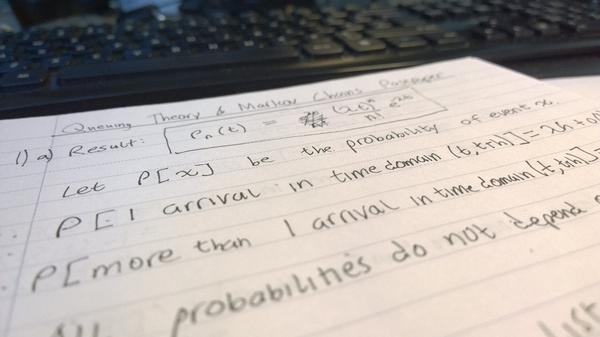 Queuing Theory & Markov Chains Past paper
1) a) Result: Pn(t) = (λt)^n/n! e^λt
Let P[x] be the probability of event x.
P[1 arrival in time domain (t,t+h)]=λh+
P[more than 1 arrival in time domain(t,t+h)]=
All probabilities do not depend